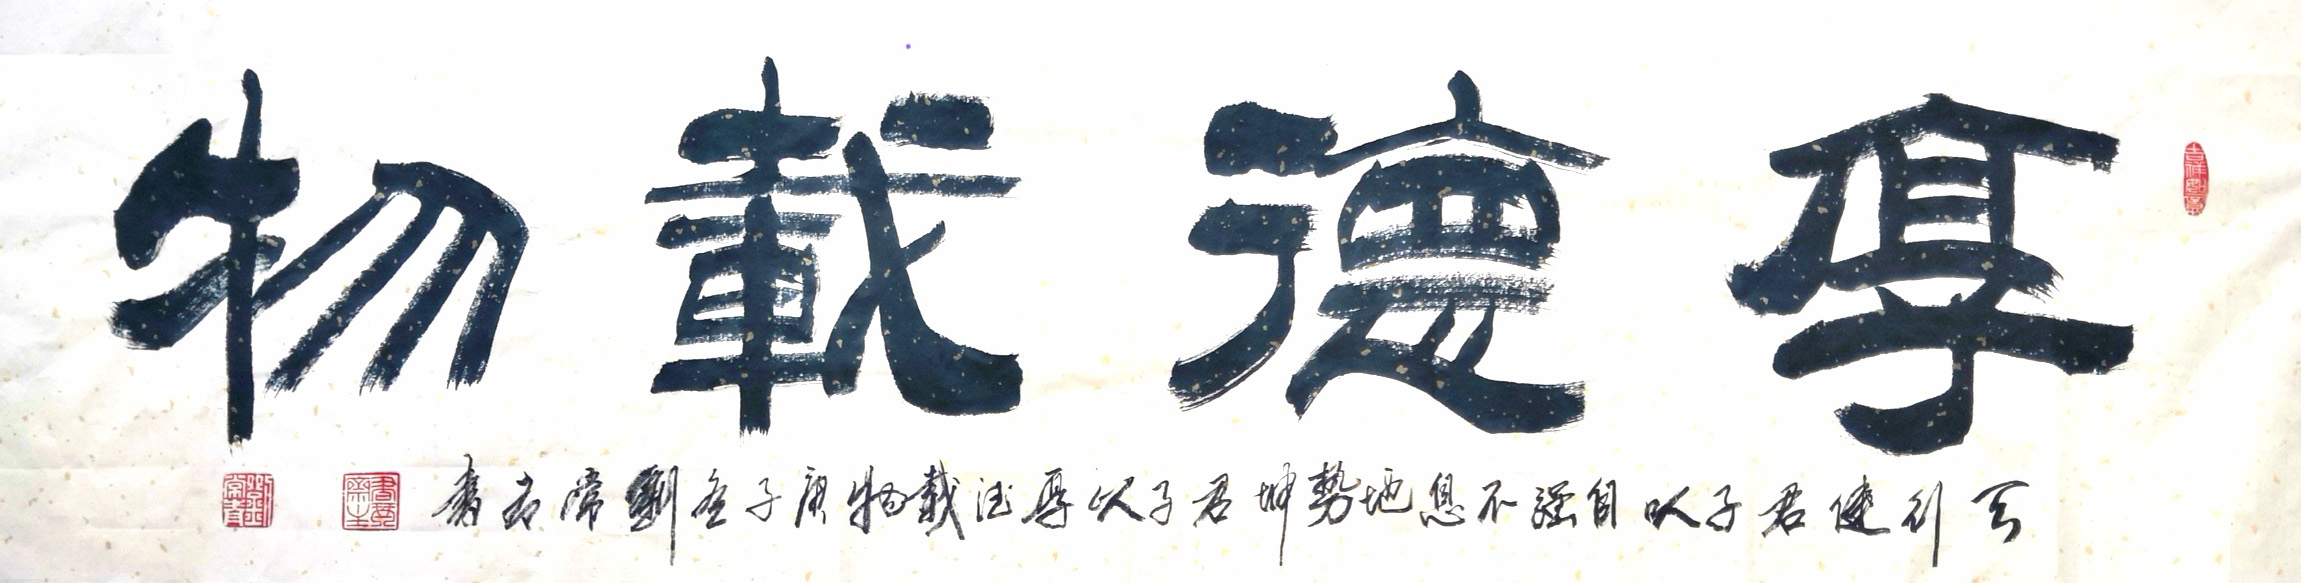 厚德載物
天行健君子以自強不息地勢坤君子以厚德載物庚子冬劉常青書